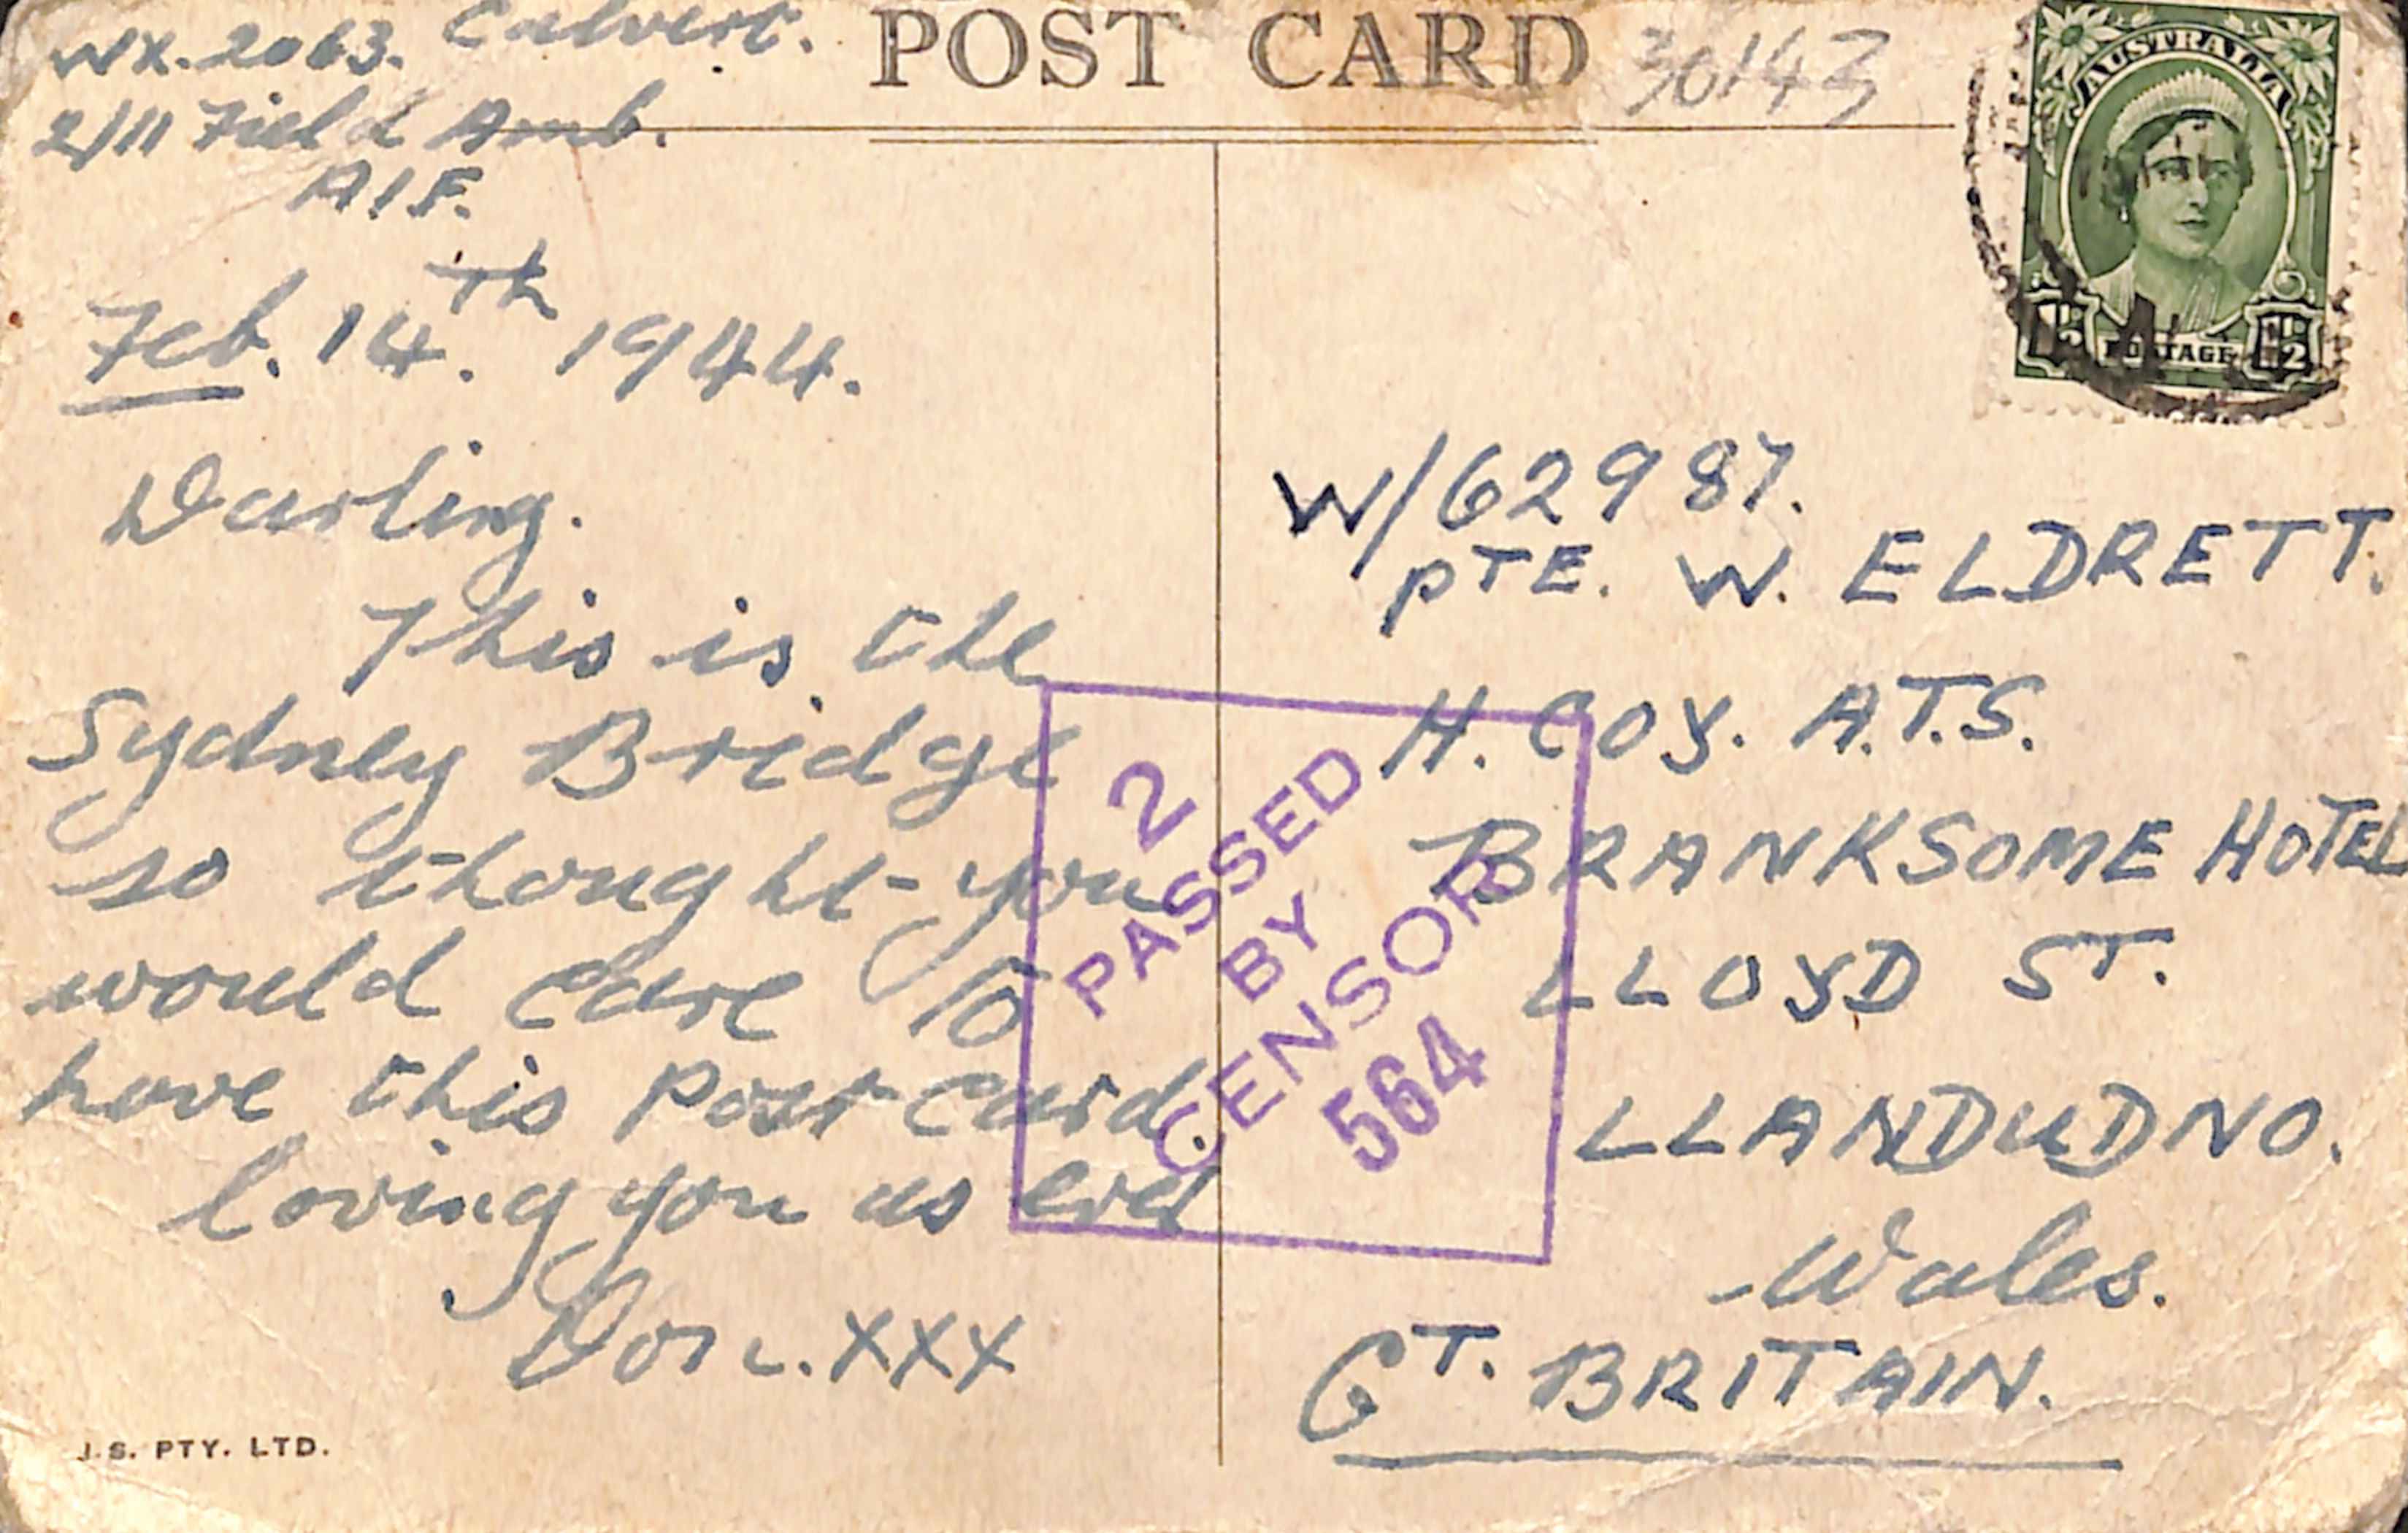 WX. 2063. Calvert.
2/11 Field Amb.
A.I.F.
Feb. 14.Th 1944.
Darling.
This is the
Sydney Bridge
so thought you
would care to
have this Post Card.
loving you as ever
Don. XXX
J.S. PTY. LTD.
POST CARD
30143
AUSTRALIA
1½ POSTAGE 1½
W/62987.
PTE. W. ELDRETT.
H. COY. A.T.S.
BRANKSOME HOTEL
LLOYD ST.
LLANDUDNO.
Wales.
GT. BRITAIN.
2
PASSED
BY
CENSOR
564